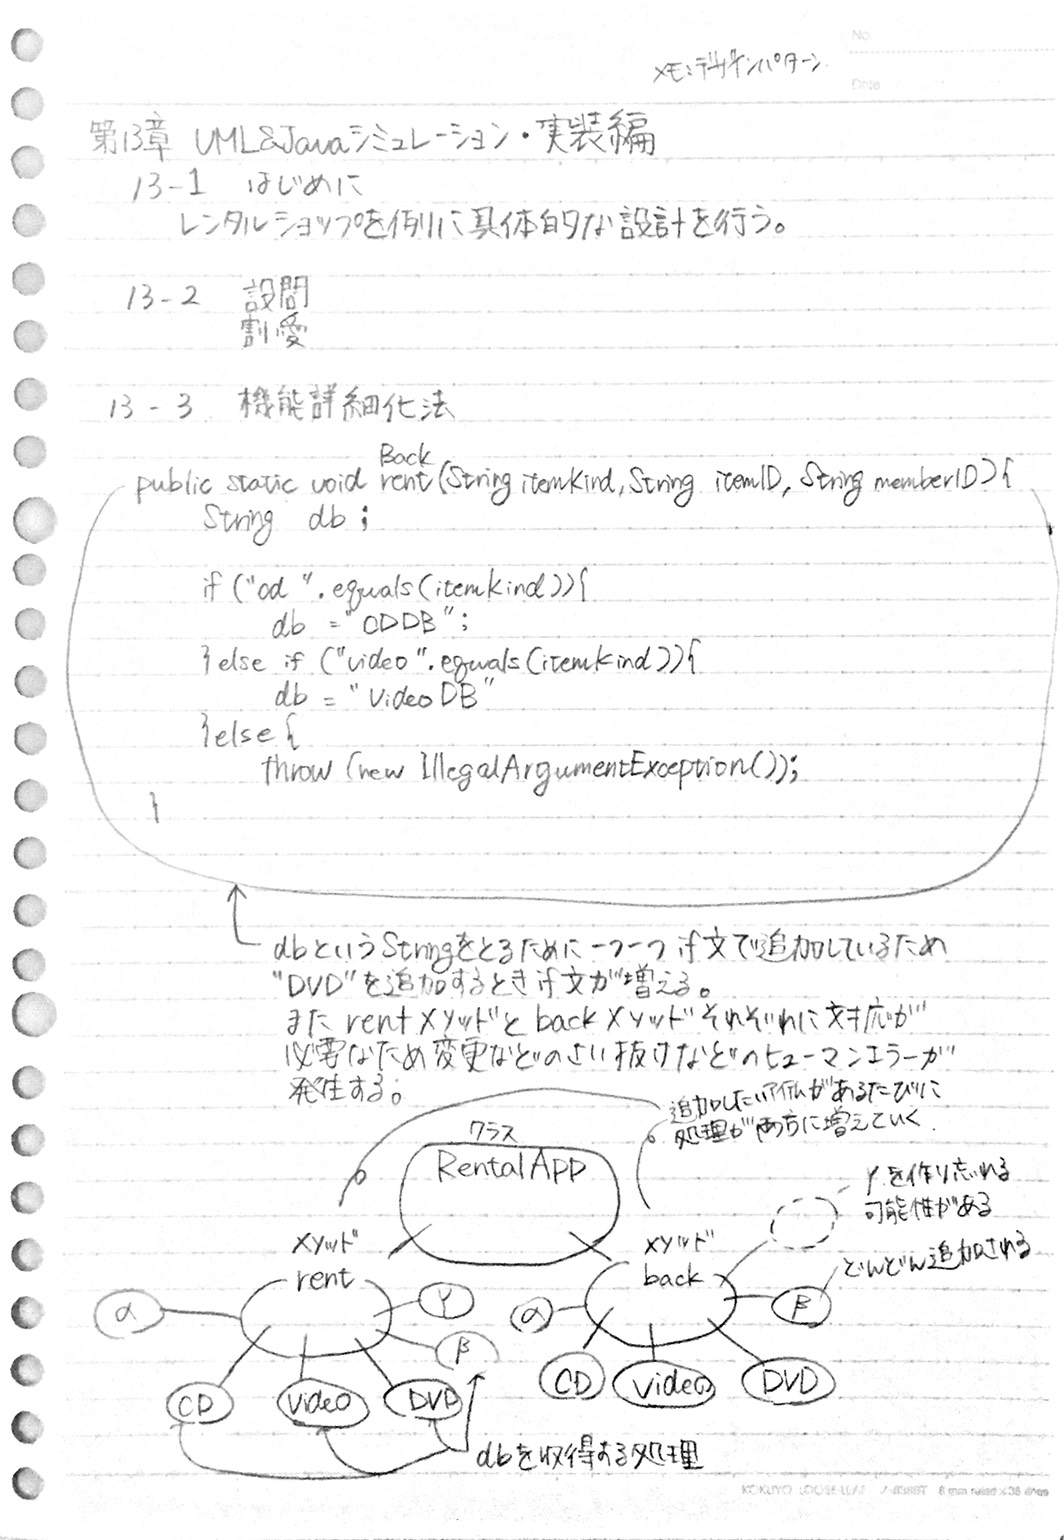 No.
メモ:デザインパターン
Date
第13章 UML&Javaシミュレーション・実装編
13-1 はじめに
レンタルショップを例に具体的な設計を行う。
13-2 設問
割愛
13-3 機能詳細化法
Back
public static void rent(String itemKind, String itemID, String memberID){
String db;
if("cd".equals(itemkind)){
db = "CDDB";
}else if ("video".equals(itemkind)){
db = "VideoDB"
}else{
throw (new IllegalArgumentException());
}
dbというStringをとるために一つ一つif文で追加しているため
"DVD"を追加するときif文が増える。
また rentメソッドと backメソッドそれぞれに対応が
必要なため変更などのさい抜けなどのヒューマンエラーが
発生する。
追加したいアイテムがあるたびに
処理が両方に増えていく
クラス
RentalApp
γを作り忘れる
可能性がある
メソッド
rent
メソッド
back
どんどん追加される
α
γ
β
CD
Video
DVD
α
β
CD
Video
DVD
dbを取得する処理
KOKUYO LOOSE-LEAF ノ-836BT 6 mm ruled×36 lines